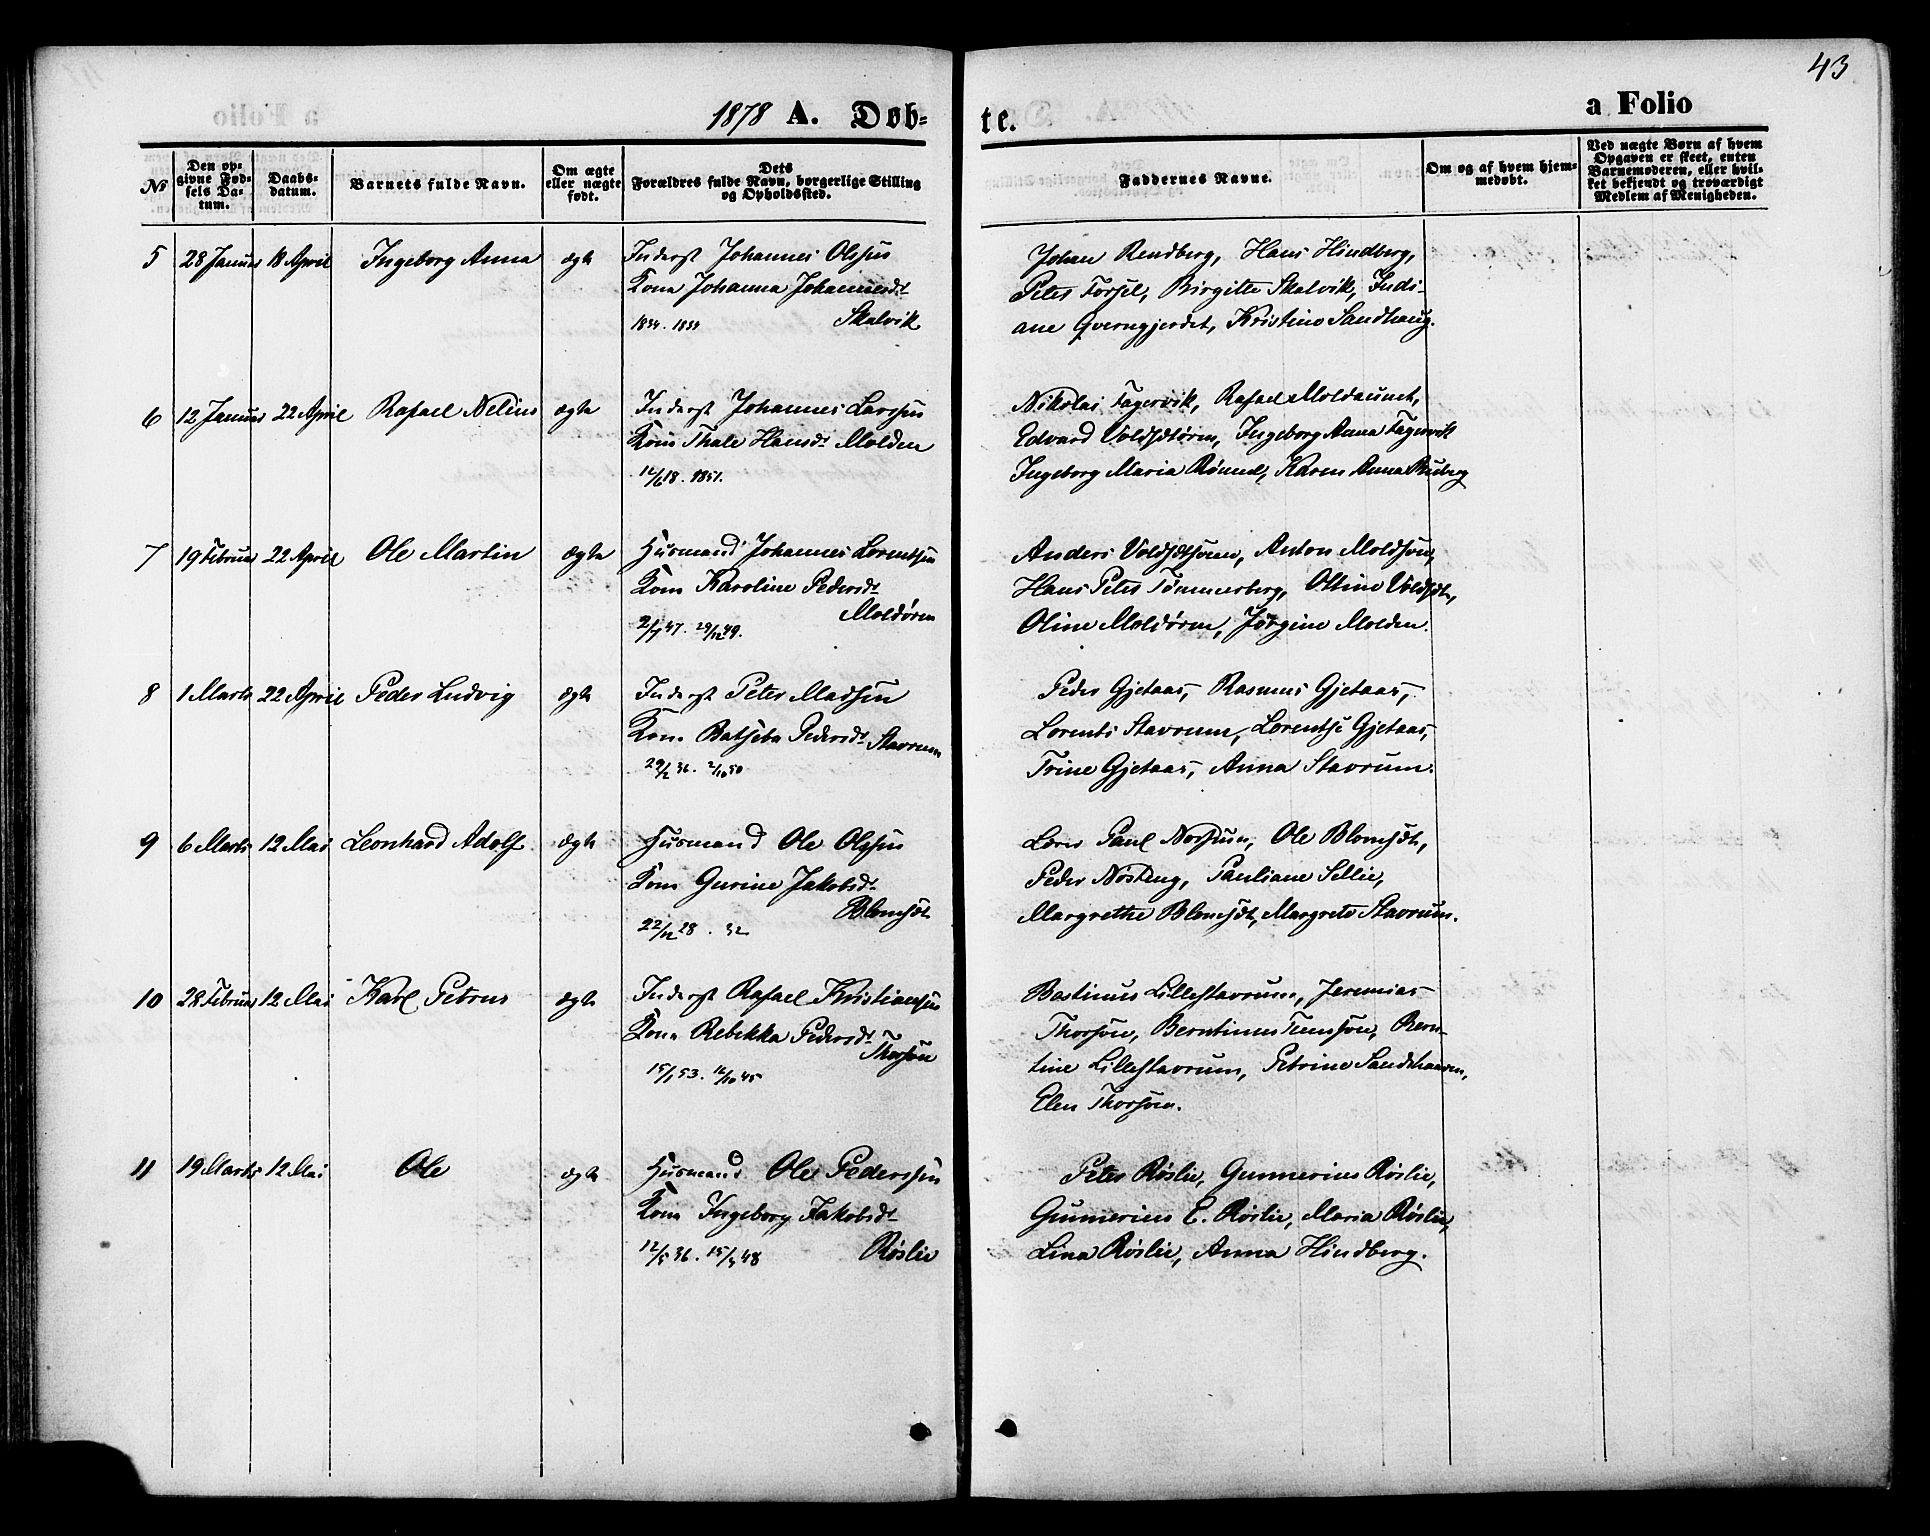 43
1878 A. Døb-
te.
a Folio
№
Den op-
givne Fød-
sels Da-
tum.
Daabs-
datum.
Barnets fulde Navn.
Om ægte
eller nægte
født.
Dets
Forældres fulde Navn, borgerlige Stilling
og Opholdssted.
Faddernes Navne.
Om og af hvem hjem-
medøbt.
Ved nægte Børn af hvem
Opgaven er skeet, enten
Barnemoderen, eller hvil-
ket bekjendt og troværdigt
Medlem af Menigheden.
5 28 Januar 18 April Ingeborg Anna ægte Inderst Johannes Olssen
Kone Johanna Johannesdt
1834. 1834 Skalvik
Johan Rendberg, Hans Hindberg,
Peter Forsel, Birgitte Skalvik, Indi-
ane Qverngjerdet, Kristine Sandhaug.
6 12 Januar 22 April Rafael Nelius ægte Inderst Johannes Larssen
Kone Thale Hansdt Molden
1851.
Nikolai Fagervik, Rafael Moldaunet,
Edvard Voldsdtøren, Ingeborg Anna Fagervik
Ingeborg Maria Rømul, Karen Anna
7 19 Februar 22 April Ole Martin ægte Husmand Johannes Lorentsen
Kone Karoline Pedersdt
Moldøren
47. 29/12 49.
Anders Voldsdtøren, Anton Moldøren,
Hans Peter Tømmerberg, Oline Voldsdt,
Oline Moldøren, Jørgine Molden.
8 1 Marts 22 April Peder Ludvig ægte Inderst Peter Madssen
Kone Batseba Pedersdt Stavrum
29/2 36. 2/10 50
Peder Gjetaas, Rasmus Gjetaas,
Lorents Stavrum, Lorentse Gjetaas,
Trine Gjetaas, Anna Stavrum.
9 6 Marts 12 Mai Leonhard Adolf ægte Husmand Ole Olssen
Kone Gurine Jakobsdt
Blomsdt
22/12 28. 32
Paul Ole Blomsdt,
Peder Pauliane Sellie,
Margrethe Blomsdt, Margrete Stavrum.
10 28 Februar 12 Mai Karl Petrus ægte Inderst Rafael Kristianssen
Kone Rebekka Pedersdt
Thorsøen
15/1 53. 12/10 45
Bastinus Lillestavrum, Jeremias
Thorsøen, Berntinus Bern-
tine Lillestavrum, Petrine Sandshaugen,
Elen Thorsøen.
11 19 Marts 12 Mai Ole ægte Husmand Ole Pederssen
Kone Ingeborg Jakobsdt
12/5 36. 15/3 48 Røslie
Peter Røslie, Gunnerius Røslie,
Gunnerius E. Røslie, Maria Røslie,
Lina Røslie, Anna Hindberg.